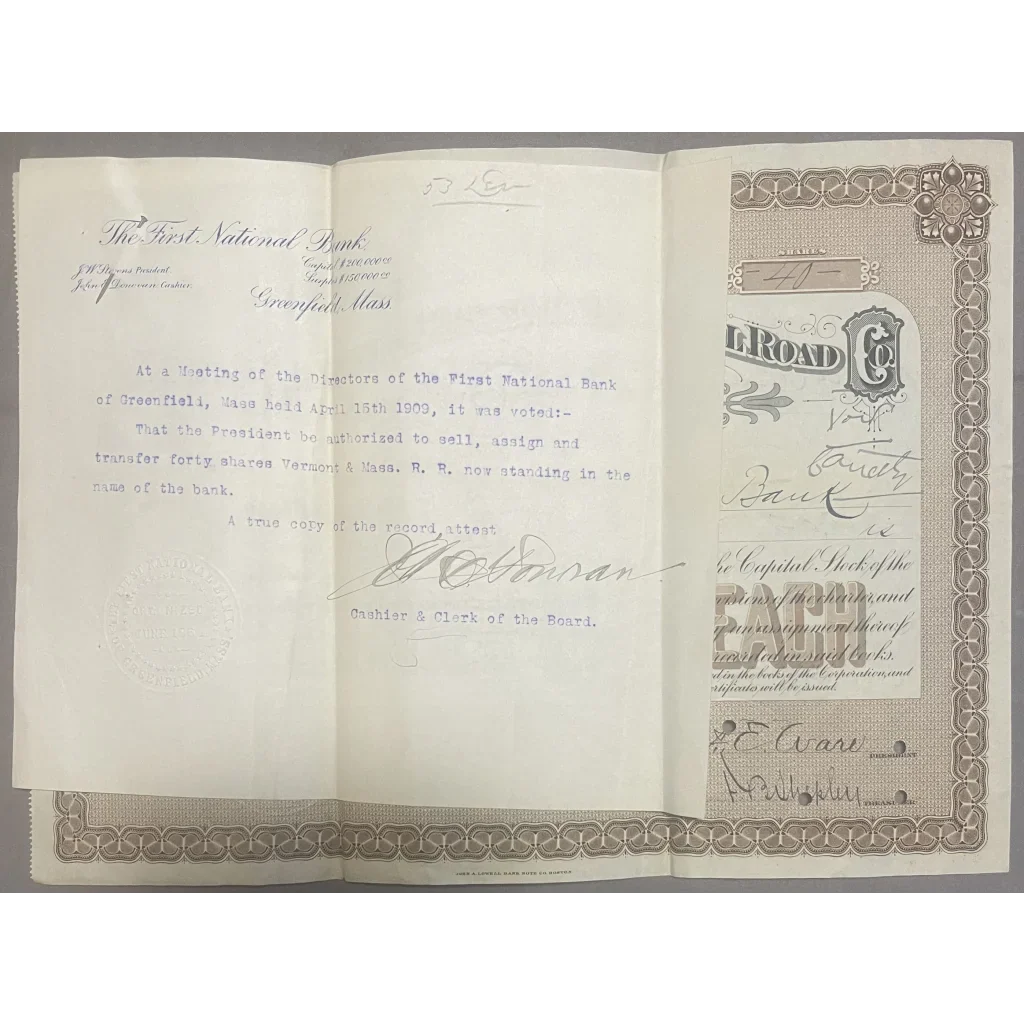 53
The First National Bank
Capital $200,000.00
Surplus $150,000.00
J.W. Stevens President.
John E. Donovan Cashier.
Greenfield, Mass.
At a Meeting of the Directors of the First National Bank
of Greenfield, Mass held April 15th 1909, it was voted:-
That the President be authorized to sell, assign and
transfer forty shares Vermont & Mass. R. R. now standing in the
name of the bank.
A true copy of the record attest
Cashier & Clerk of the Board.
SHARES
-40-
LROAD CO.
Bank
is
he Capital Stock of the
visions of the charter, and
an assignment thereof
recorded in said books.
EACH
d in the books of the Corporation, and
ertificates, will be issued.
E. Ware PRESIDENT
TREASURER
JOHN A. LOWELL BANK NOTE CO. BOSTON